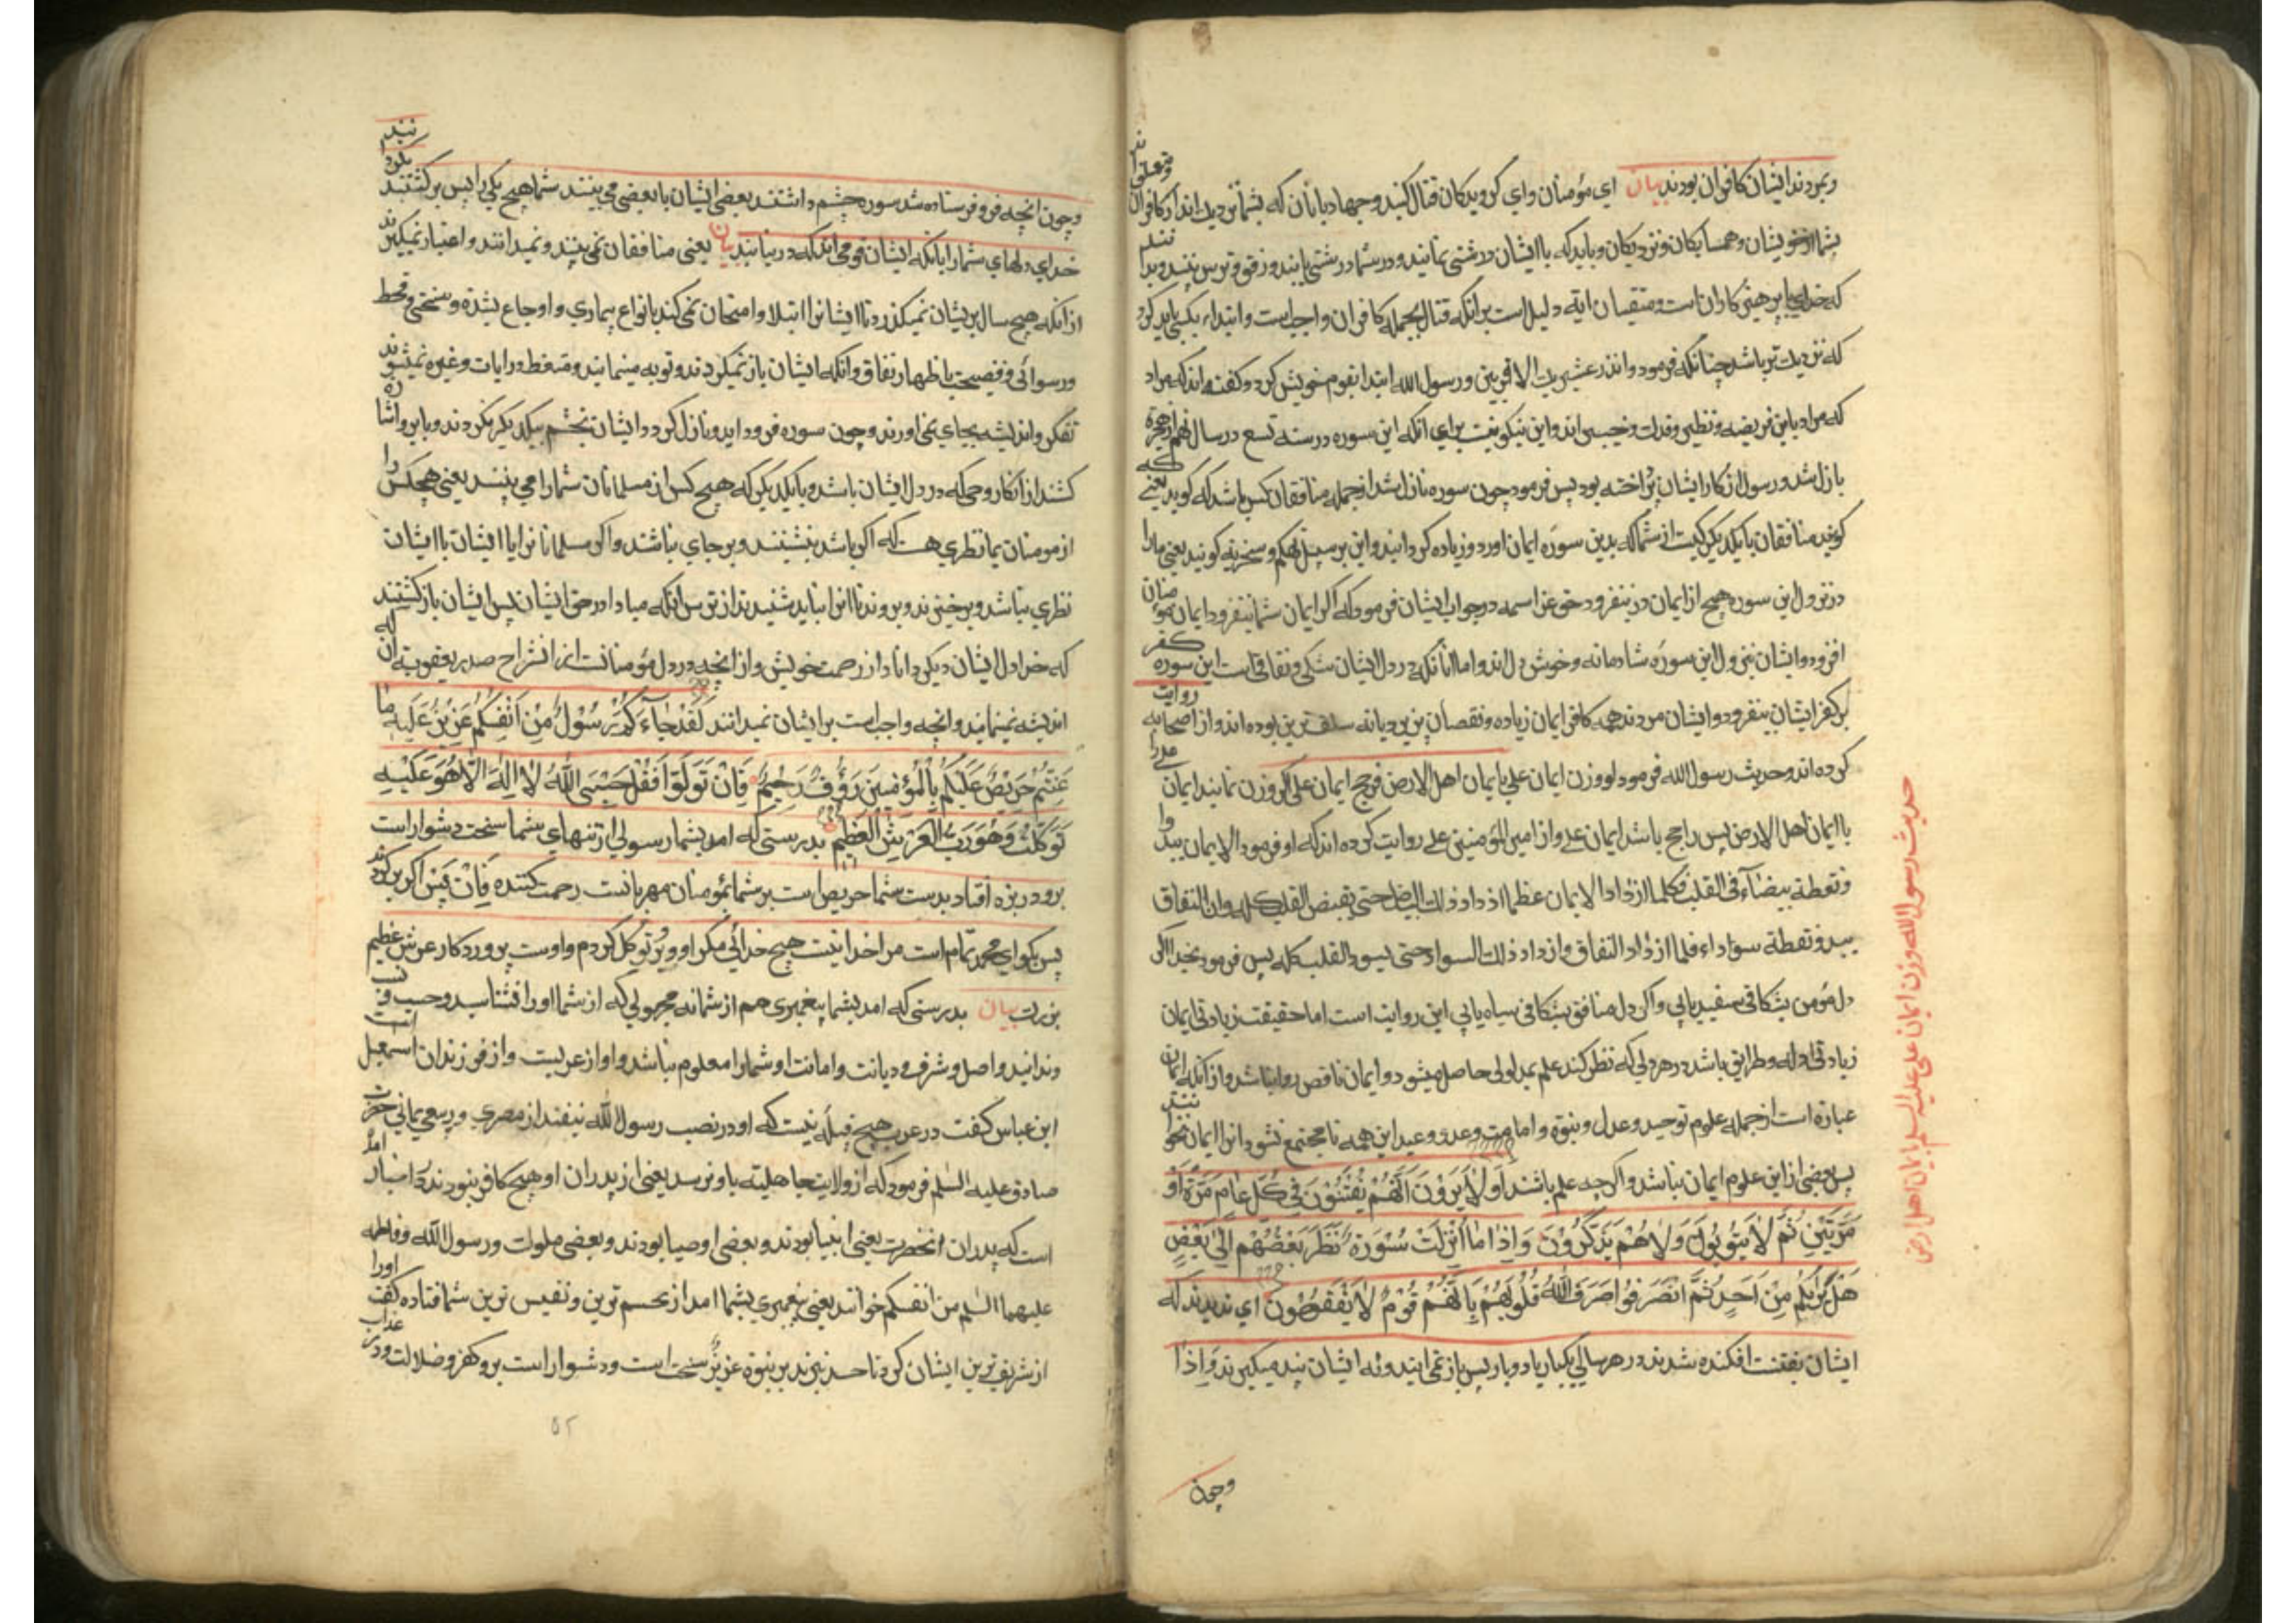 وبمردند ایشان کافران بودند بیان ای مؤمنان وای کرویدکان قتال کنید وجهاد با آنان که بشما نزدیک اند از کافران
بشما از خویشان وهمسایکان ونزدیکان وباید که با ایشان درشتی نمانید ودر شما درشتی یابند ورفق وترس نبینند وبدا نند
که خدای با پرهیزکاران است ومتقیان این ایه دلیل است بر انکه قتال بجمله کافران واجب است وابتداء بکسی باید کرد
که نزدیک تر باشد چنانکه فرمود وانذر عشیرتک الاقربین ورسول الله ابتدا بقوم خویش کرد وکفته اند که مراد
که مراد باین قریضه ونظیر وفدک وخیبر اند واین نیکو نیست برای انکه این سوره در سنه تسع در سال نهم از هجرة
نازل شد ورسول از کار ایشان پرداخته بود پس فرمود چون سوره نازل شد از جمله منافقان کس باشد که کوید یعنی که
کویند منافقان با یکدیکر کیست از شما که بدین سوره ایمان اورد وزیاده کردانید واین بر سبیل تهکم وسخریه کویند یعنی ما را
در نزول این سوره هیچ از ایمان در نیفزود حق عز اسمه در جواب ایشان فرمود که اکر ایمان شما نیفزود ایمان مؤمنان
افزود وایشان بنزول این سوره شادمانه وخوش دل اند واما آنانکه در دل ایشان شکی ونفاقی است این سوره کفر
بر کفر ایشان بیفزود وایشان مردند همه کافر ایمان زیاده ونقصان پذیرد یا نه بوده اند واز اصحابه روایت
کرده اند وحدیث رسول الله فرمود لو وزن ایمان علی بایمان اهل الارض فرجح ایمان علی اکر وزن نمایند ایمان علی را
با ایمان اهل الارض پس راجح باشد ایمان علی واز امیر المؤمنین علی روایت کرده اند که او فرمود الایمان یبدوا
ونقطة بیضآء فی القلب فکلما ازداد الایمان عظما ازداد ذلک البیاض حتی یقبض القلب کله وان النفاق
یبدو نقطة سوداء فلما ازداد النفاق وازداد ذلک السواد حتی یسود القلب کله پس فرمود بخدا اکر
دل مؤمن بشکافی سفید یابی واکر دل منافق بشکافی سیاه یابی این روایت است اما حقیقت زیادتی ایمان
زیادتی ادله وطرایق باشد در هر دلی که نظر کند علم بمدلولی حاصل میشود وایمان ناقص روا نباشد واز انکه ایمان
عبارة است از جمله علوم توحید وعدل ونبوة وامامت ووعد ووعید این همه تا مجتمع نشود انرا ایمان نخوانند
پس بعضی از این علوم ایمان نباشد واکر چه علم باشد اَوَلٰا یَرَوْنَ اَنَّهُمْ یُفْتَنُوْنَ فِی کُلِّ عٰامٍ مَرَّةً اَوْ
مَرَّتَیْنِ ثُمَّ لٰا یَتُوبُونَ وَلٰا هُمْ یَذَّکَّرُوْنَ وَاِذٰا مٰا اُنْزِلَتْ سُوْرَةٌ نَظَرَ بَعْضُهُمْ اِلٰی بَعْضٍ
هَلْ یَرٰیکُمْ مِنْ اَحَدٍ ثُمَّ انْصَرَفُوا صَرَفَ اللّٰهُ قُلُوبَهُمْ بِاَنَّهُمْ قَوْمٌ لٰا یَفْقَهُونَ ای ندیدند که
ایشان بفتنت افکنده شدند در هر سالی یکبار یا دو بار پس باز نمی ایند ونه ایشان پند میکیرند وَاِذٰا
وچون
حدیث رسول الله وزن ایمان علی علیه السلم با ایمان اهل ارض
وچون انچه فرو فرستاده شد سوره چشم داشتند بعضی ایشان با بعضی می بینند شما هیچ یکی را پس برکشتند
خدای دلهای شما را بانکه ایشان قومی اند که در نیابند بیان یعنی منافقان نمی بینند ونمیدانند واعتبار نمیکیرند
از انکه هیچ سال بریشان نمیکذرد تا ایشانرا ابتلا وامتحان نمی کند بانواع بیماری واوجاع بشدة وسختی وقحط
ورسوائی وفضیحت باظهار نفاق وانکه ایشان باز نمیکردند وتوبه مینمایند ومتعظ در ایات وغیره نمیشوند
تفکر واندیشه بجای نمی اورند وچون سوره فرود اید ونازل کردد ایشان بچشم بیکدیکر نکردند وبابرو اشاره
کنند از انکار وحی که در دل ایشان باشد وبا یکدیکر که هیچ کس از مسلمانان شما را می بینند یعنی هیچکس را
از مومنان بما نظری هست که اکر باشد بنشینند وبر جای باشند واکر مسلمانانرا با ایشان با ایشان
نظری نباشد وبرخیزند وبروند تا انرا نباید شنیدند از ترس انکه مبادا در حق ایشان پس ایشان بازکشتند
که خدا دل ایشان دیکر داناد از رحمت خویش واز انچه در دل مؤمنانست از انشراح صدر بعقوبة ان که
اندیشه نمینمایند وانچه واجب است بر ایشان نمیدانند لَقَدْ جٰاءَکُمْ رَسُوْلٌ مِنْ اَنْفُسِکُمْ عَزِیْزٌ عَلَیْهِ مٰا
عَنِتُّمْ حَرِیْصٌ عَلَیْکُمْ بِالْمُؤْمِنِیْنَ رَؤُفٌ رَحِیْمٌ فَاِنْ تَوَلَّوْا فَقُلْ حَسْبِیَ اللّٰهُ لٰا اِلٰهَ اِلَّا هُوَ عَلَیْهِ
تَوَکَّلْتُ وَهُوَ رَبُّ الْعَرْشِ الْعَظِیْمِ بدرستی که امد بشما رسولی از تنهای شما سخت دشوار است
برو در بزه افتاد بدست شما حریص است بر شما بمؤمنان مهربانست رحمت کننده فَاِنْ پس اکر برکردند
پس بکو ای محمد تمام است مرا خدا نیست هیچ خدائی مکر او وبرو توکل کردم واوست پروردکار عرش عظیم
بزرک بیان بدرستی که امد بشما پیغمبری هم از شما نه مجهولی که از شما او را نشناسید وحسب ونسب
وندانید واصل وشرف ودیانت وامانت او شما را معلوم نباشد واو از عربست واز فرزندان اسمعیل است
ابن عباس کفت در عرب هیچ قبیله نیست که او در نصب رسول الله نیفتد از مصری وربیعی یمانی حضرت
صادق علیه السلم فرمود که از ولایت جاهلیته باو نرسد یعنی از پدران او هیچ کافر نبودند در اخبار امده
است که پدران انحضرت یعنی انبیا بودند وبعضی اوصیا بودند وبعضی ملوک ورسول الله وفاطمه
علیهما السلم من انفسکم خواند یعنی پیغمبری بشما امد از نحسم ترین ونفیس ترین شما قتاده کفت او را
از شریف ترین ایشان کرد تا حسد نبرند بر نبوة عزیزٌ سخت است ودشوار است برو کفر وضلالت ودر عذاب
۵۲